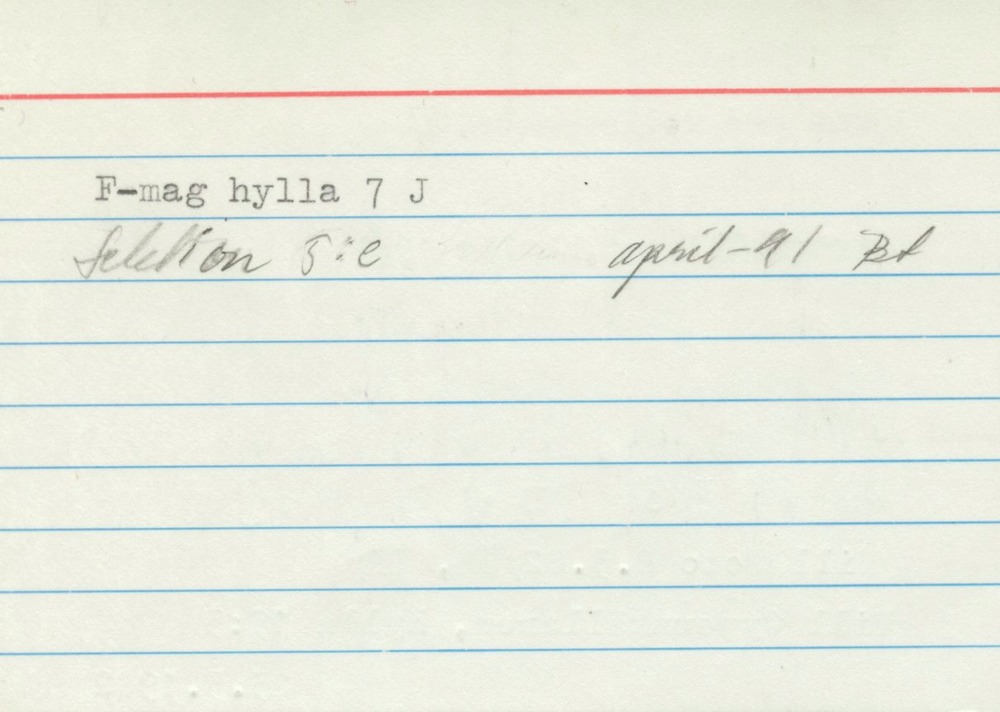 F-mag hylla 7 J
Sektion 5:C april-91 Bt